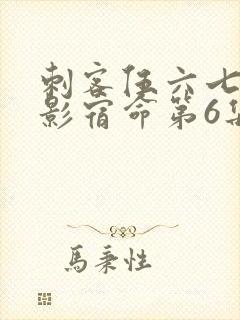 刺客伍六七
影宿命第6集
馬秉性